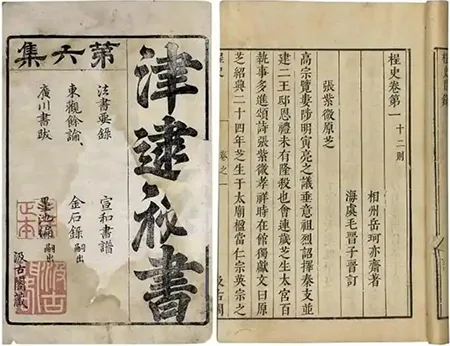 第六集
津逮秘書
法書要錄
宣和書譜
東觀餘論
金石錄嗣出
廣川書跋
墨池編嗣出
汲古閣藏
桯史卷第一 十二則
相州岳珂亦齋著
海虞毛晉子晉訂
張紫微原芝
高宗覽婁陟明寅亮之議垂意祖烈詔擇秦支並
建二王邸恩禮未有隆殺也會連歲芝生太宮百
執事多進頌詩張紫微孝祥時在館獨獻文曰原
芝紹興二十四年芝生于太廟楹當仁宗英宗之
桯史
卷之一
汲古閣